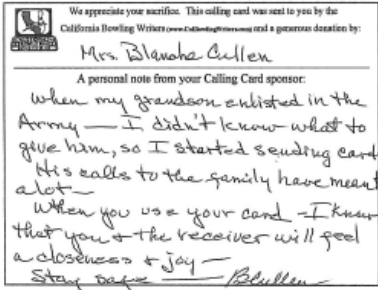 We appreciate your sacrifice. This calling card was sent to you by the
California Bowling Writers (www.CalBowlingWriters.com) and a generous donation by:
Mrs. Blanche Cullen
A personal note from your Calling Card sponsor:
When my grandson enlisted in the
Army — I didn't know what to
give him, so I started sending card
His calls to the family have meant
alot —
When you use your card - I know
that you & the receiver will feel
a closeness & joy —
Stay safe — BCullen